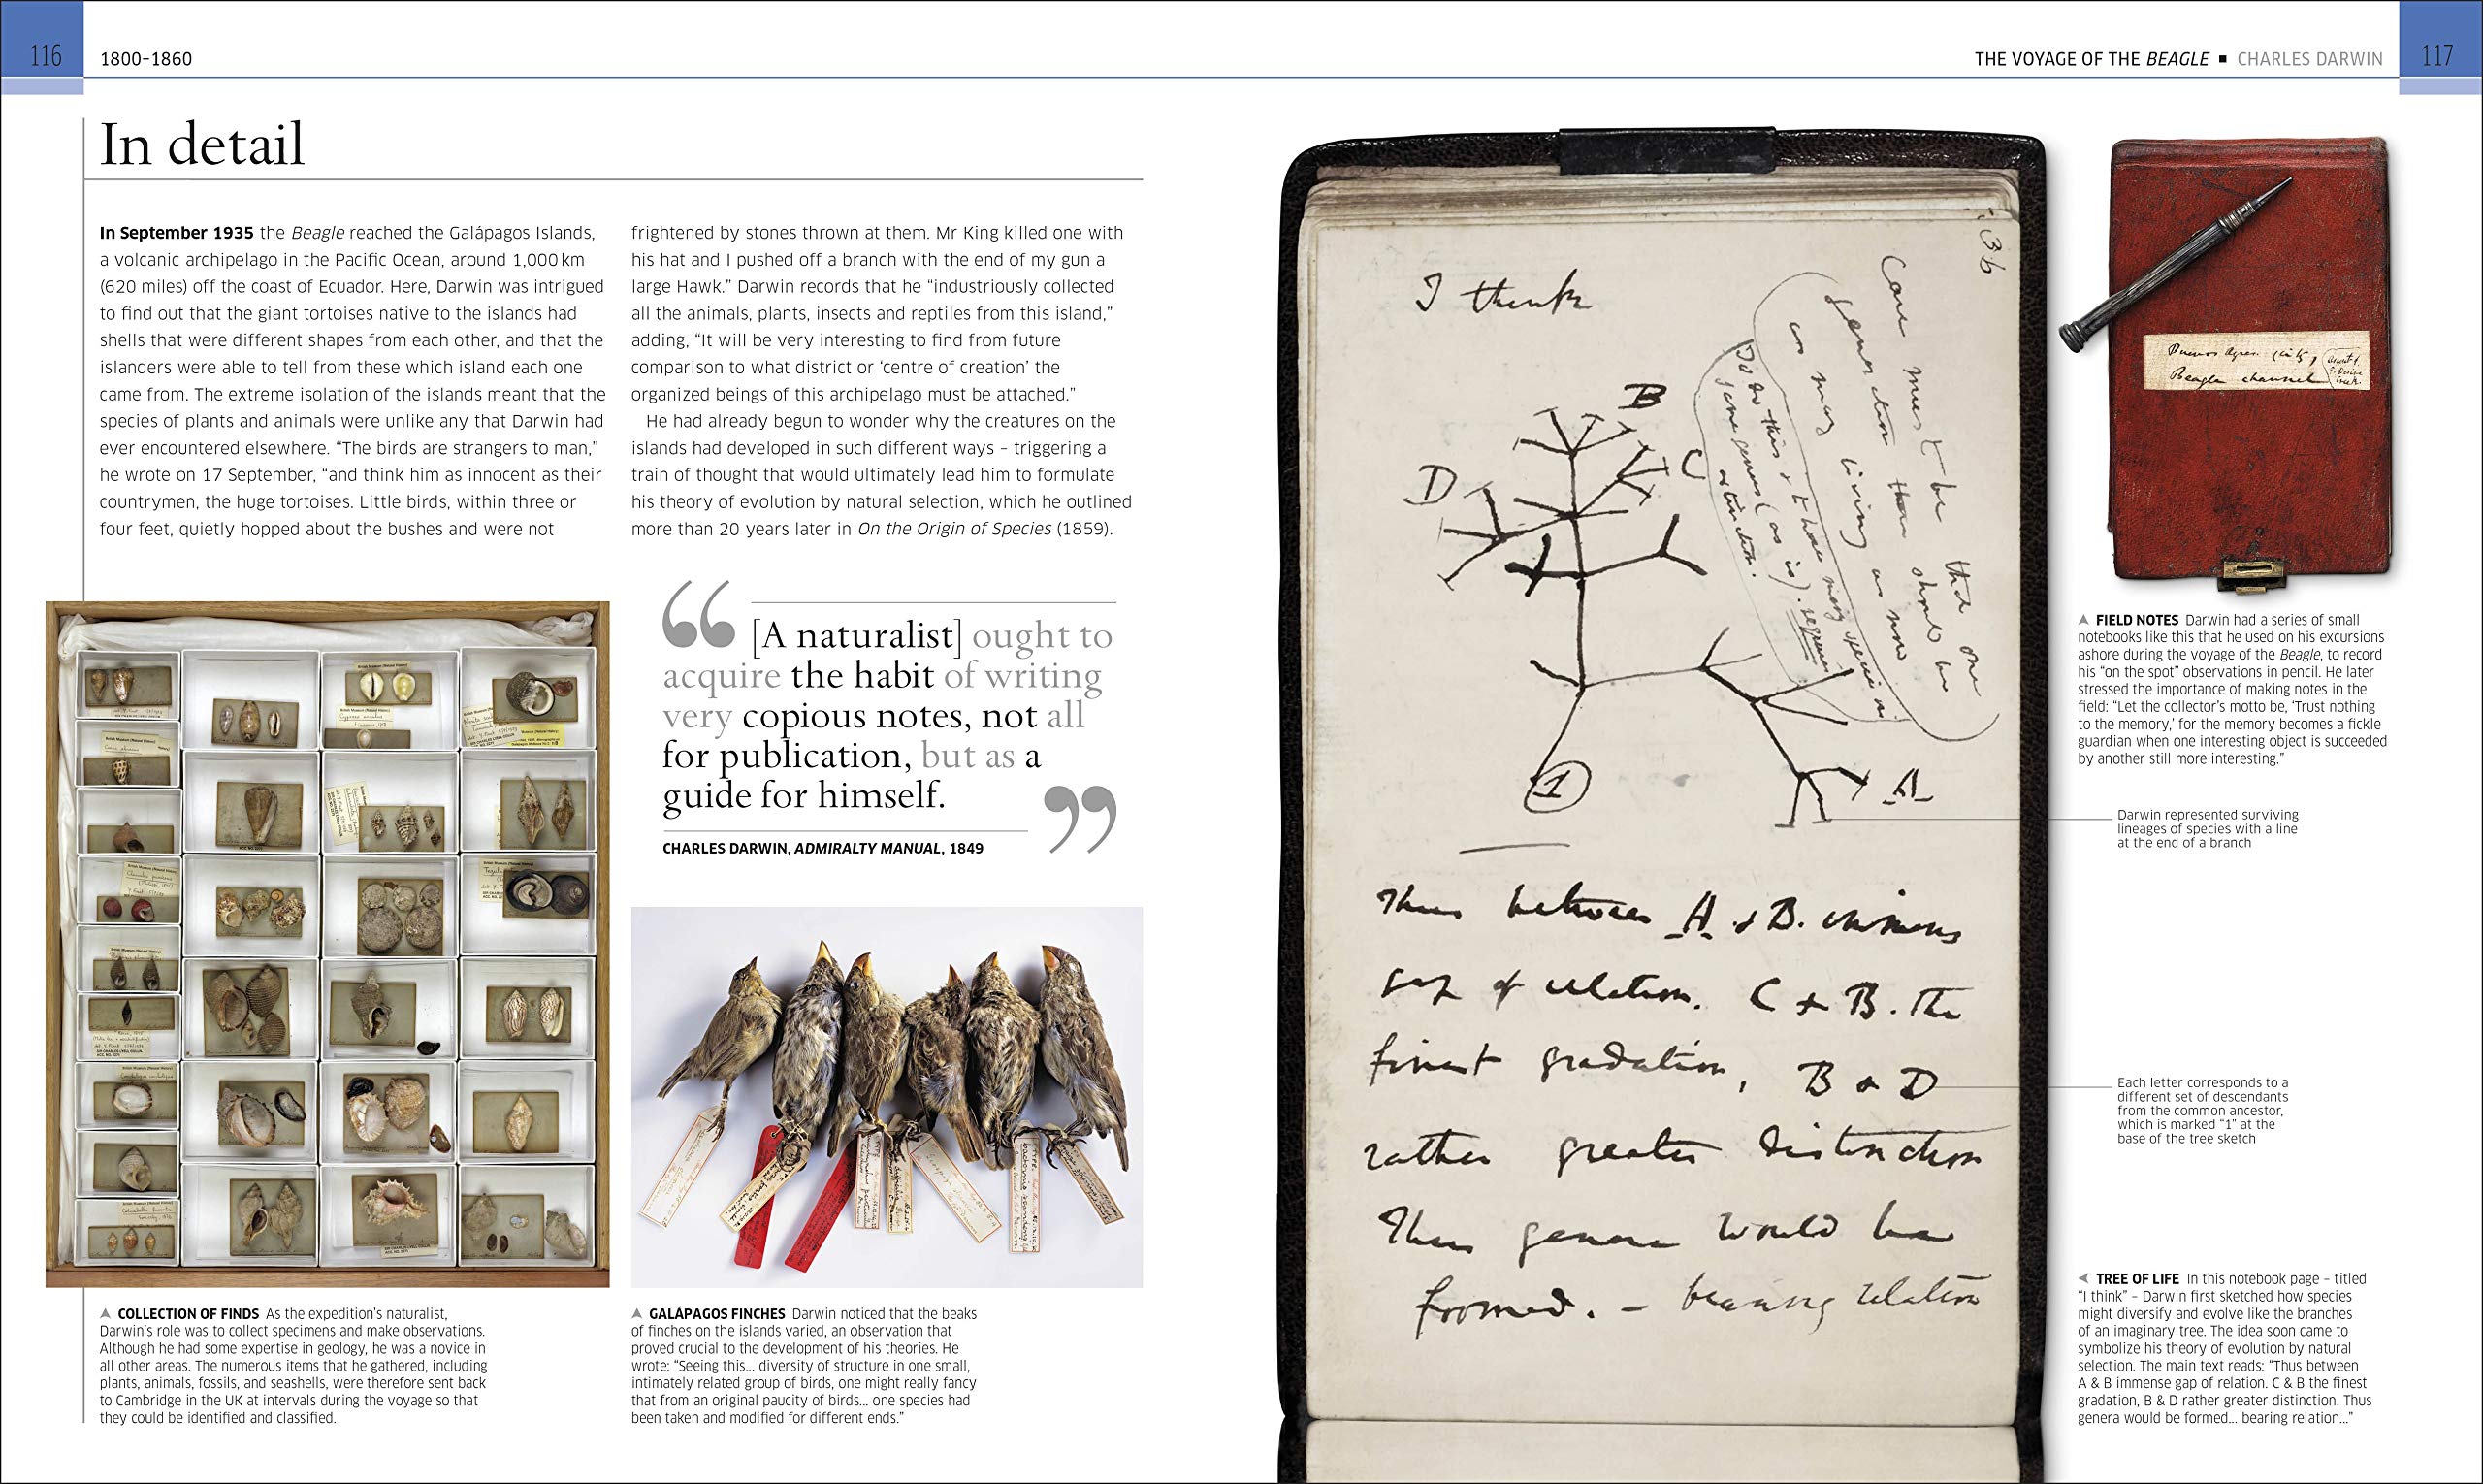 116
1800–1860
THE VOYAGE OF THE BEAGLE ■ CHARLES DARWIN
117
In detail
In September 1935 the Beagle reached the Galápagos Islands,
a volcanic archipelago in the Pacific Ocean, around 1,000 km
(620 miles) off the coast of Ecuador. Here, Darwin was intrigued
to find out that the giant tortoises native to the islands had
shells that were different shapes from each other, and that the
islanders were able to tell from these which island each one
came from. The extreme isolation of the islands meant that the
species of plants and animals were unlike any that Darwin had
ever encountered elsewhere. “The birds are strangers to man,”
he wrote on 17 September, “and think him as innocent as their
countrymen, the huge tortoises. Little birds, within three or
four feet, quietly hopped about the bushes and were not
frightened by stones thrown at them. Mr King killed one with
his hat and I pushed off a branch with the end of my gun a
large Hawk.” Darwin records that he “industriously collected
all the animals, plants, insects and reptiles from this island,”
adding, “It will be very interesting to find from future
comparison to what district or ‘centre of creation’ the
organized beings of this archipelago must be attached.”
He had already begun to wonder why the creatures on the
islands had developed in such different ways – triggering a
train of thought that would ultimately lead him to formulate
his theory of evolution by natural selection, which he outlined
more than 20 years later in On the Origin of Species (1859).
“[A naturalist] ought to
acquire the habit of writing
very copious notes, not all
for publication, but as a
guide for himself.”
CHARLES DARWIN, ADMIRALTY MANUAL, 1849
COLLECTION OF FINDS As the expedition’s naturalist,
Darwin’s role was to collect specimens and make observations.
Although he had some expertise in geology, he was a novice in
all other areas. The numerous items that he gathered, including
plants, animals, fossils, and seashells, were therefore sent back
to Cambridge in the UK at intervals during the voyage so that
they could be identified and classified.
GALÁPAGOS FINCHES Darwin noticed that the beaks
of finches on the islands varied, an observation that
proved crucial to the development of his theories. He
wrote: “Seeing this... diversity of structure in one small,
intimately related group of birds, one might really fancy
that from an original paucity of birds... one species had
been taken and modified for different ends.”
36
I think
Case must be that one
generation then should be
as many living as now
To do this & to have many species in
same genus (as is). requires
extinction.
B
C
D
A
1
Thus between A & B. immense
gap of relation. C & B. The
finest gradation, B & D
rather greater distinction
Thus genera would be
formed. – bearing relation
Buenos Ayres city,
Beagle channel
FIELD NOTES Darwin had a series of small
notebooks like this that he used on his excursions
ashore during the voyage of the Beagle, to record
his “on the spot” observations in pencil. He later
stressed the importance of making notes in the
field: “Let the collector’s motto be, ‘Trust nothing
to the memory,’ for the memory becomes a fickle
guardian when one interesting object is succeeded
by another still more interesting.”
Darwin represented surviving
lineages of species with a line
at the end of a branch
Each letter corresponds to a
different set of descendants
from the common ancestor,
which is marked “1” at the
base of the tree sketch
TREE OF LIFE In this notebook page – titled
“I think” – Darwin first sketched how species
might diversify and evolve like the branches
of an imaginary tree. The idea soon came to
symbolize his theory of evolution by natural
selection. The main text reads: “Thus between
A & B immense gap of relation. C & B the finest
gradation, B & D rather greater distinction. Thus
genera would be formed... bearing relation...”